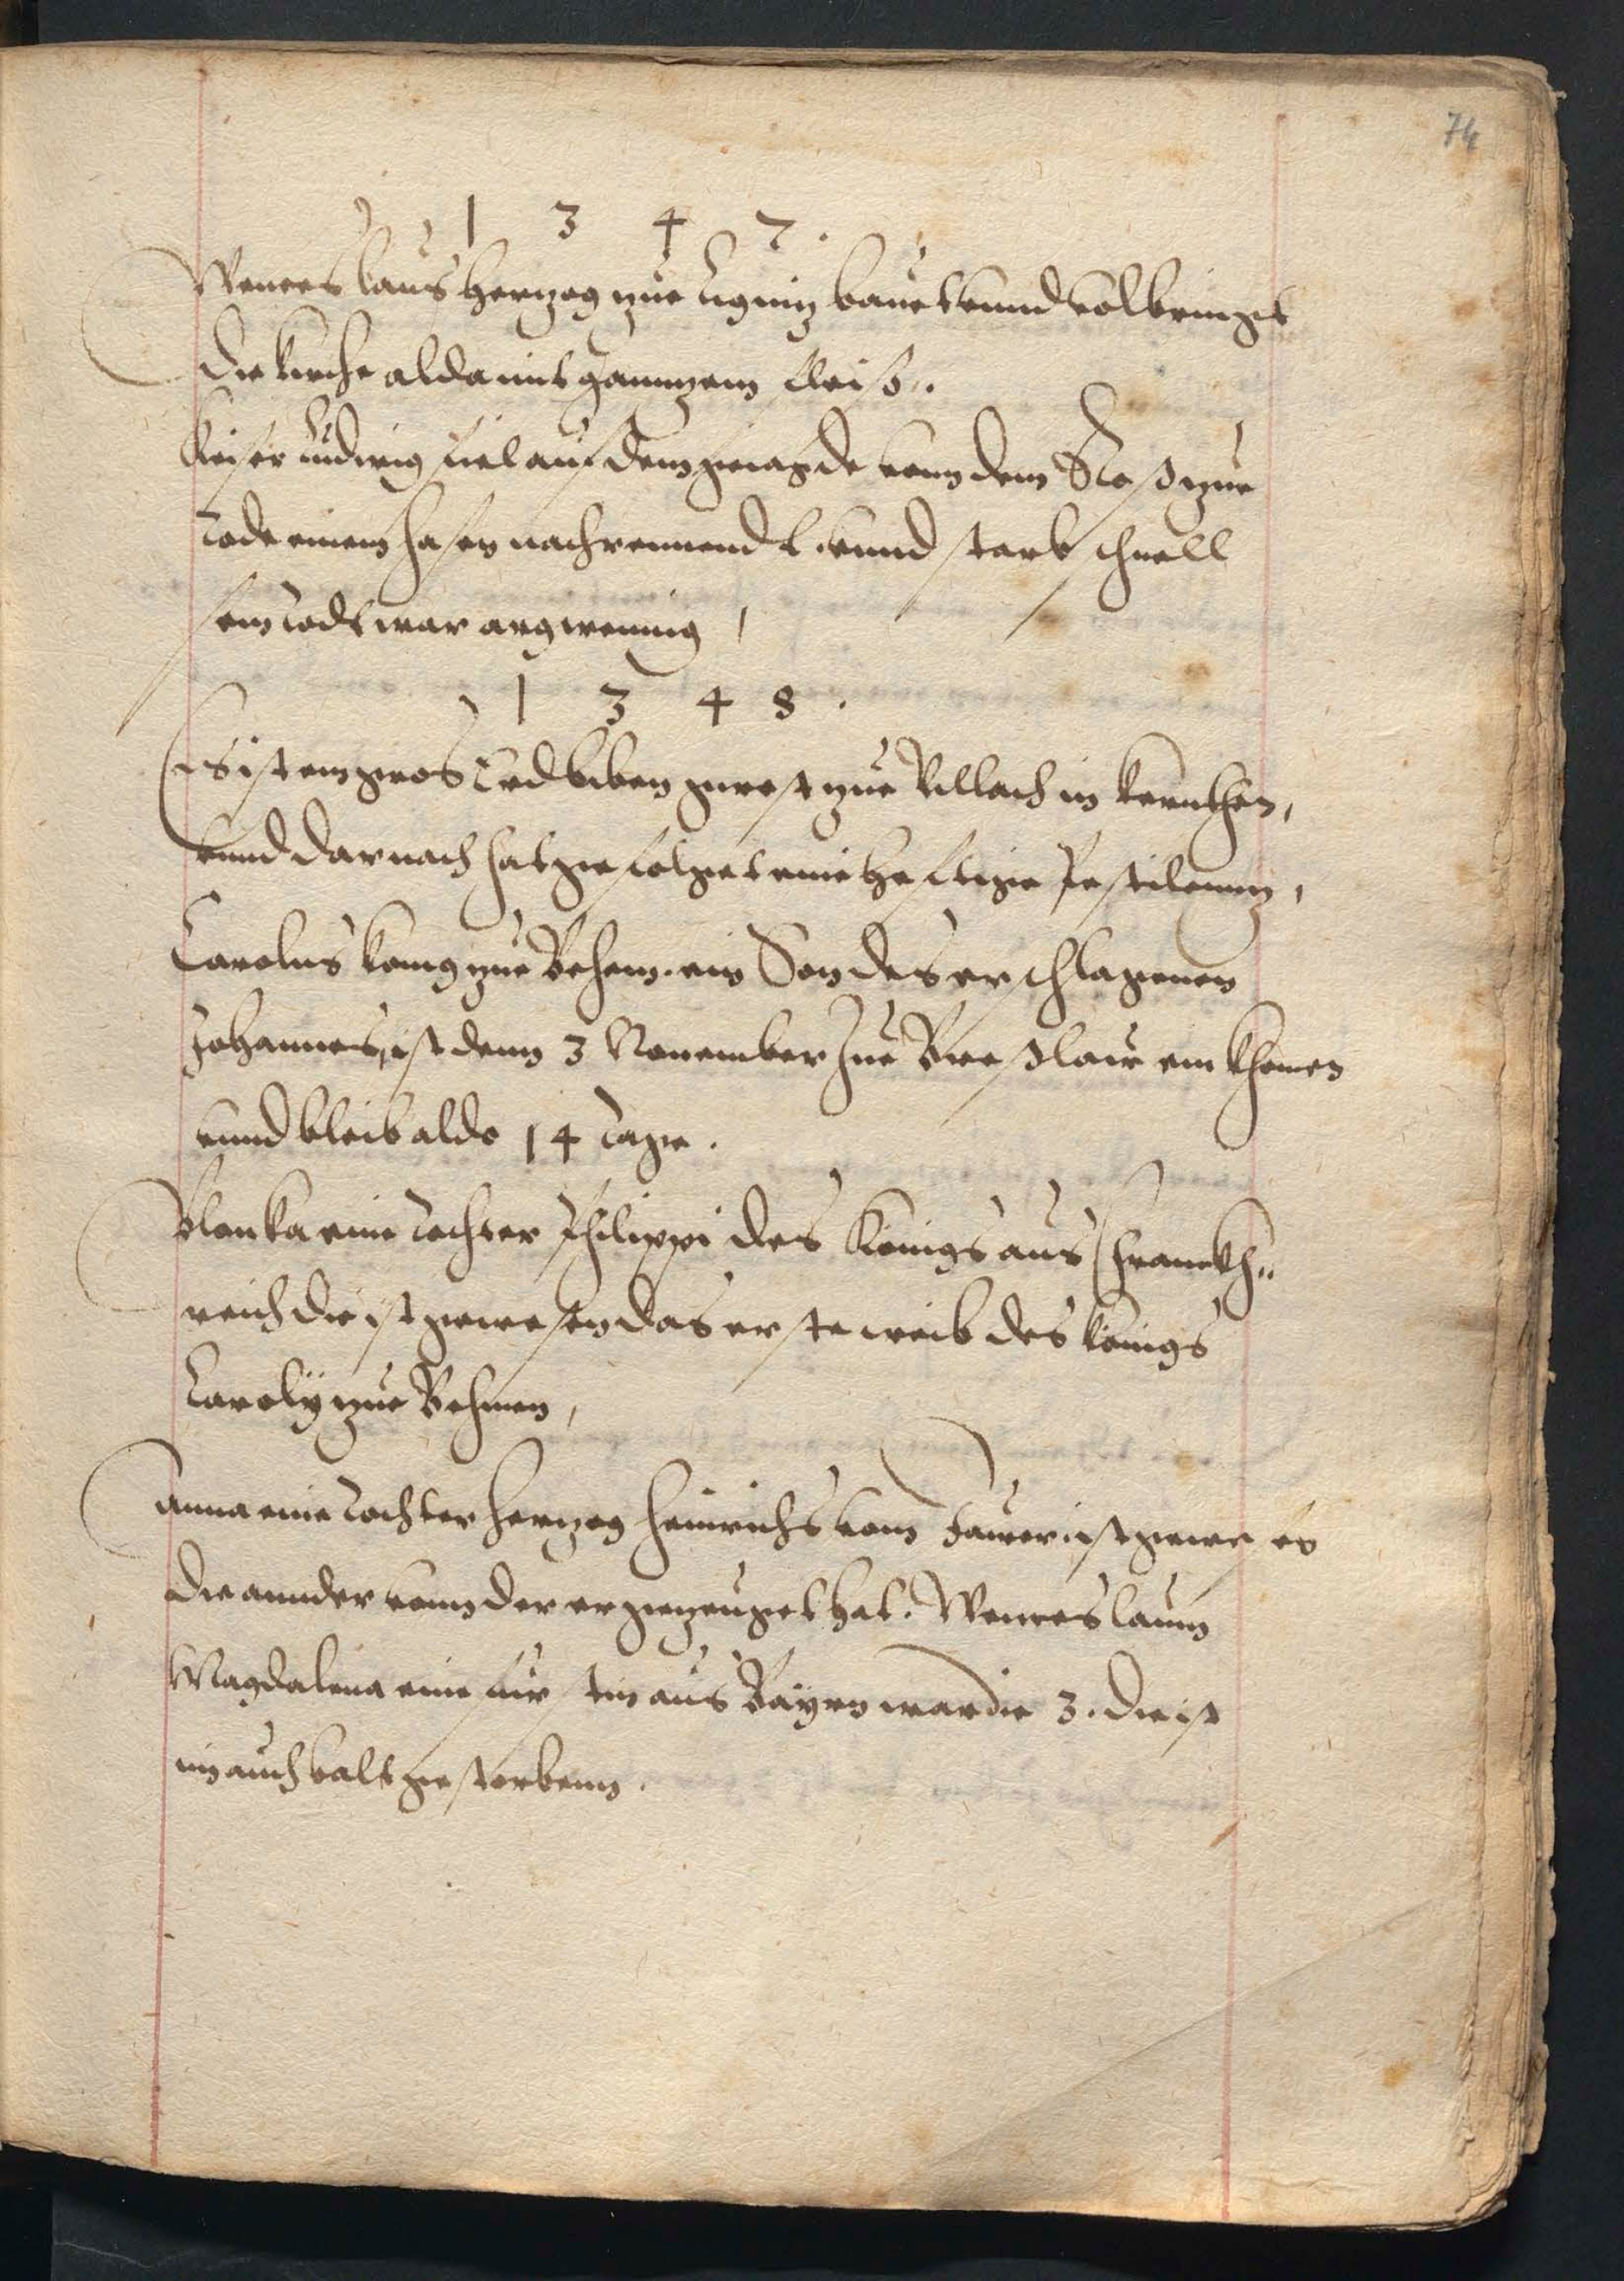 74
1 3 4 7.
Wenceslaus Hertzog zue Lignitz bauet vnnd volbringet
die kirche alda mit ganntzem fleiß.
Keiser Ludwig fiel auf dem gejagde vonn dem Roß zue
Tode einem hasen nachrennendt. vnnd starb schnell
sein Todt war argwenig,
1 3 4 8.
Es ist ein gros Erdbiben gwest zue Villach in kernthen,
vnnd darnach hat gefolget eine heftige Pestilenntz,
Carolus konig zue Behem. ein Son des erschlagenen
Johannes, ist denn 3 Nouember Zue Breßlaw ein khomen
vnnd bleib aldo 14 Tage.
Blanka eine Tochter Philippi des Königs aus Frannckh„
reich die ist gewesen das erste weib des königs
Carolÿ zue Behmen,
Anna eine Tochter Hertzog Heinrichs vom Jawer ist gewesen
die annder vonn der er gezeuget hat. Wenceslaum
Magdalena eine fürstin aus Bayrn war die 3. die ist
im auch balt gestorbenn.